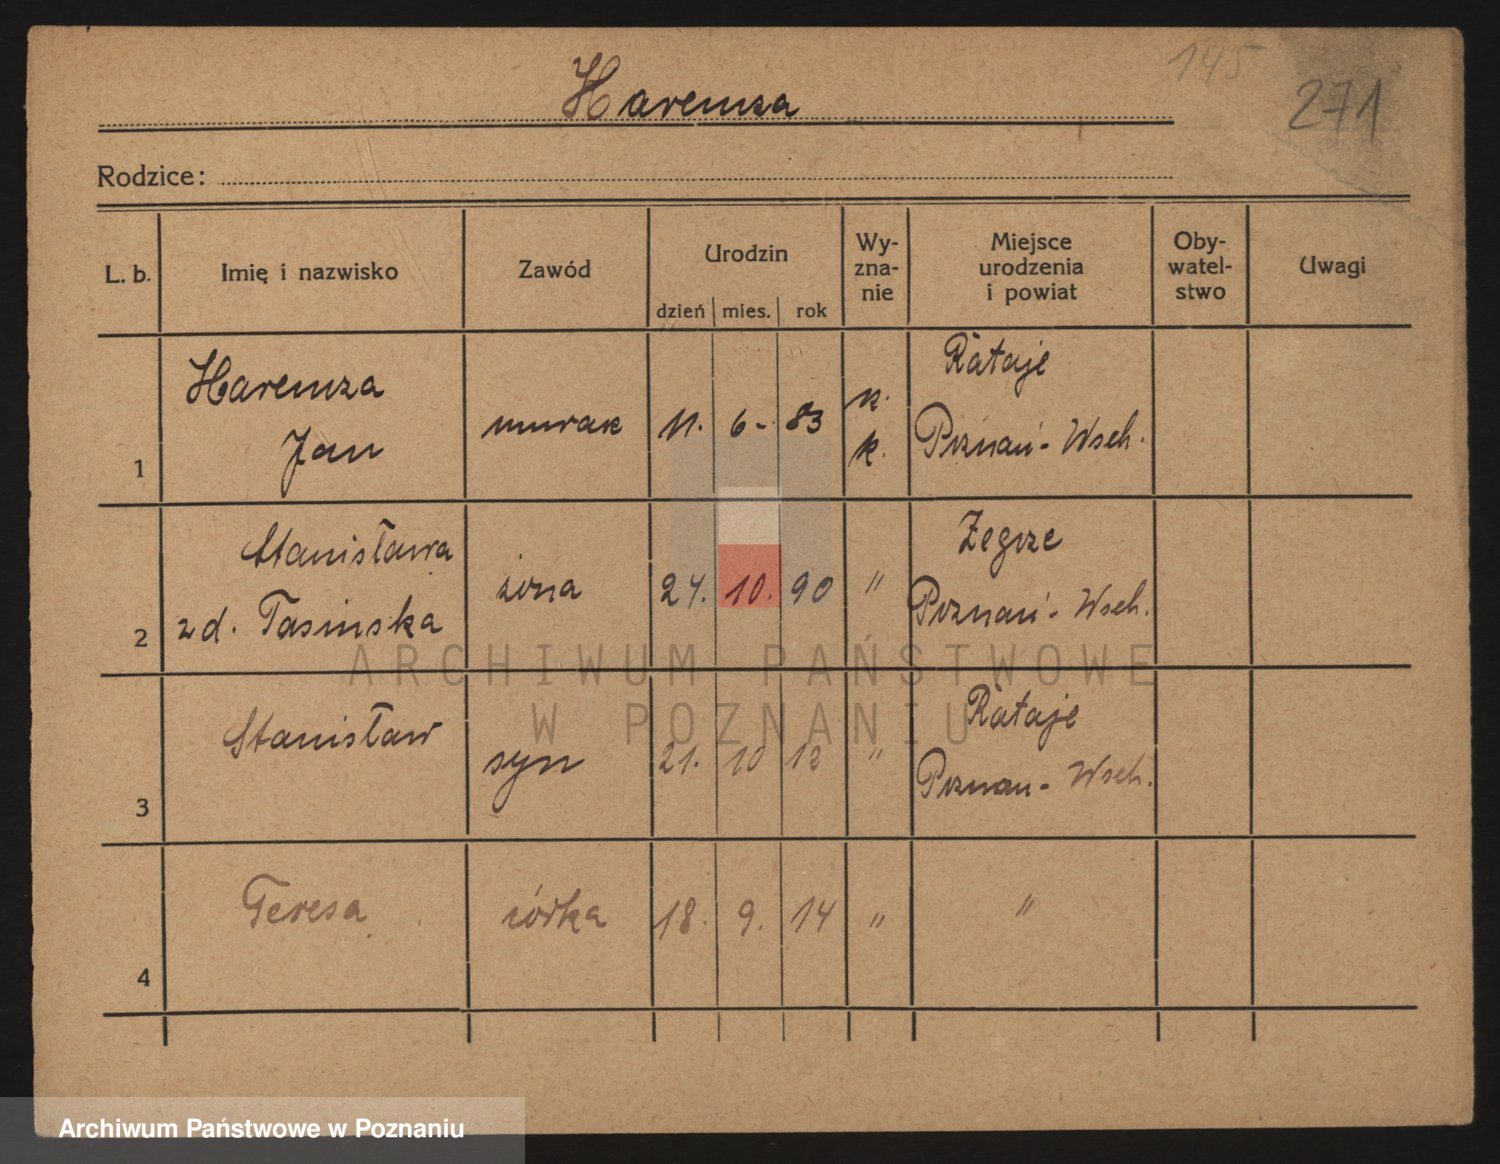 145
271
Haremza
Rodzice:
L. b. Imię i nazwisko Zawód Urodzin dzień mies. rok Wy-zna-nie Miejsce urodzenia i powiat Oby-watel-stwo Uwagi
1 Haremza Jan murarz 11. 6- 83 r. k. Rataje Poznań - Wsch.
2 Stanisława zd. Tasinska żona 24. 10. 90 " Zegrze Poznań - Wsch.
3 Stanisław syn 21. 10 12 " Rataje Poznan - Wsch.
4 Teresa córka 18. 9. 14 " "
ARCHIWUM PAŃSTWOWE
W POZNANIU
Archiwum Państwowe w Poznaniu